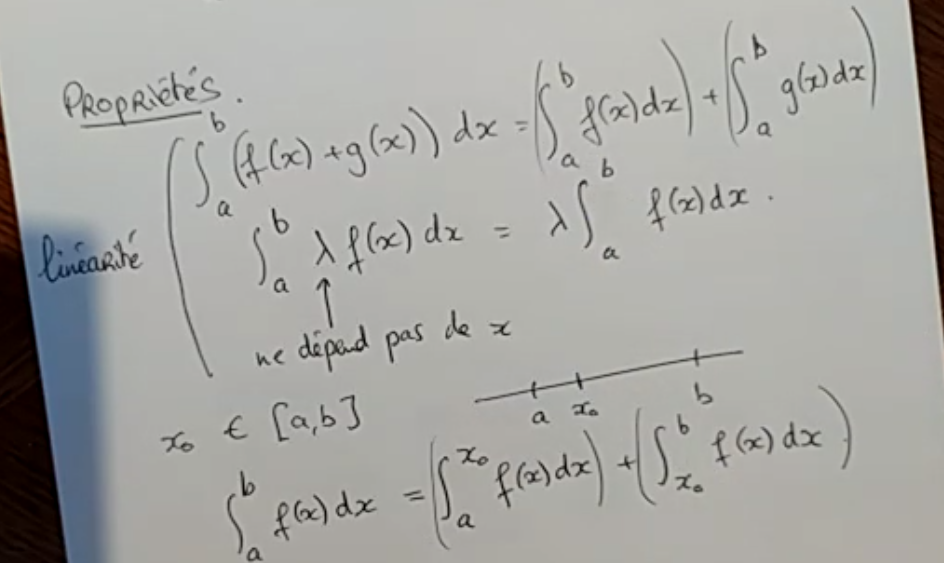 Propriétés.
∫_a^b (f(x)+g(x)) dx = (∫_a^b f(x)dx) + (∫_a^b g(x)dx)
linéarité
∫_a^b λ f(x) dx = λ ∫_a^b f(x)dx.
↑
ne dépend pas de x
x₀ ∈ [a,b]
a x₀ b
∫_a^b f(x)dx = (∫_a^{x₀} f(x)dx) + (∫_{x₀}^b f(x)dx)